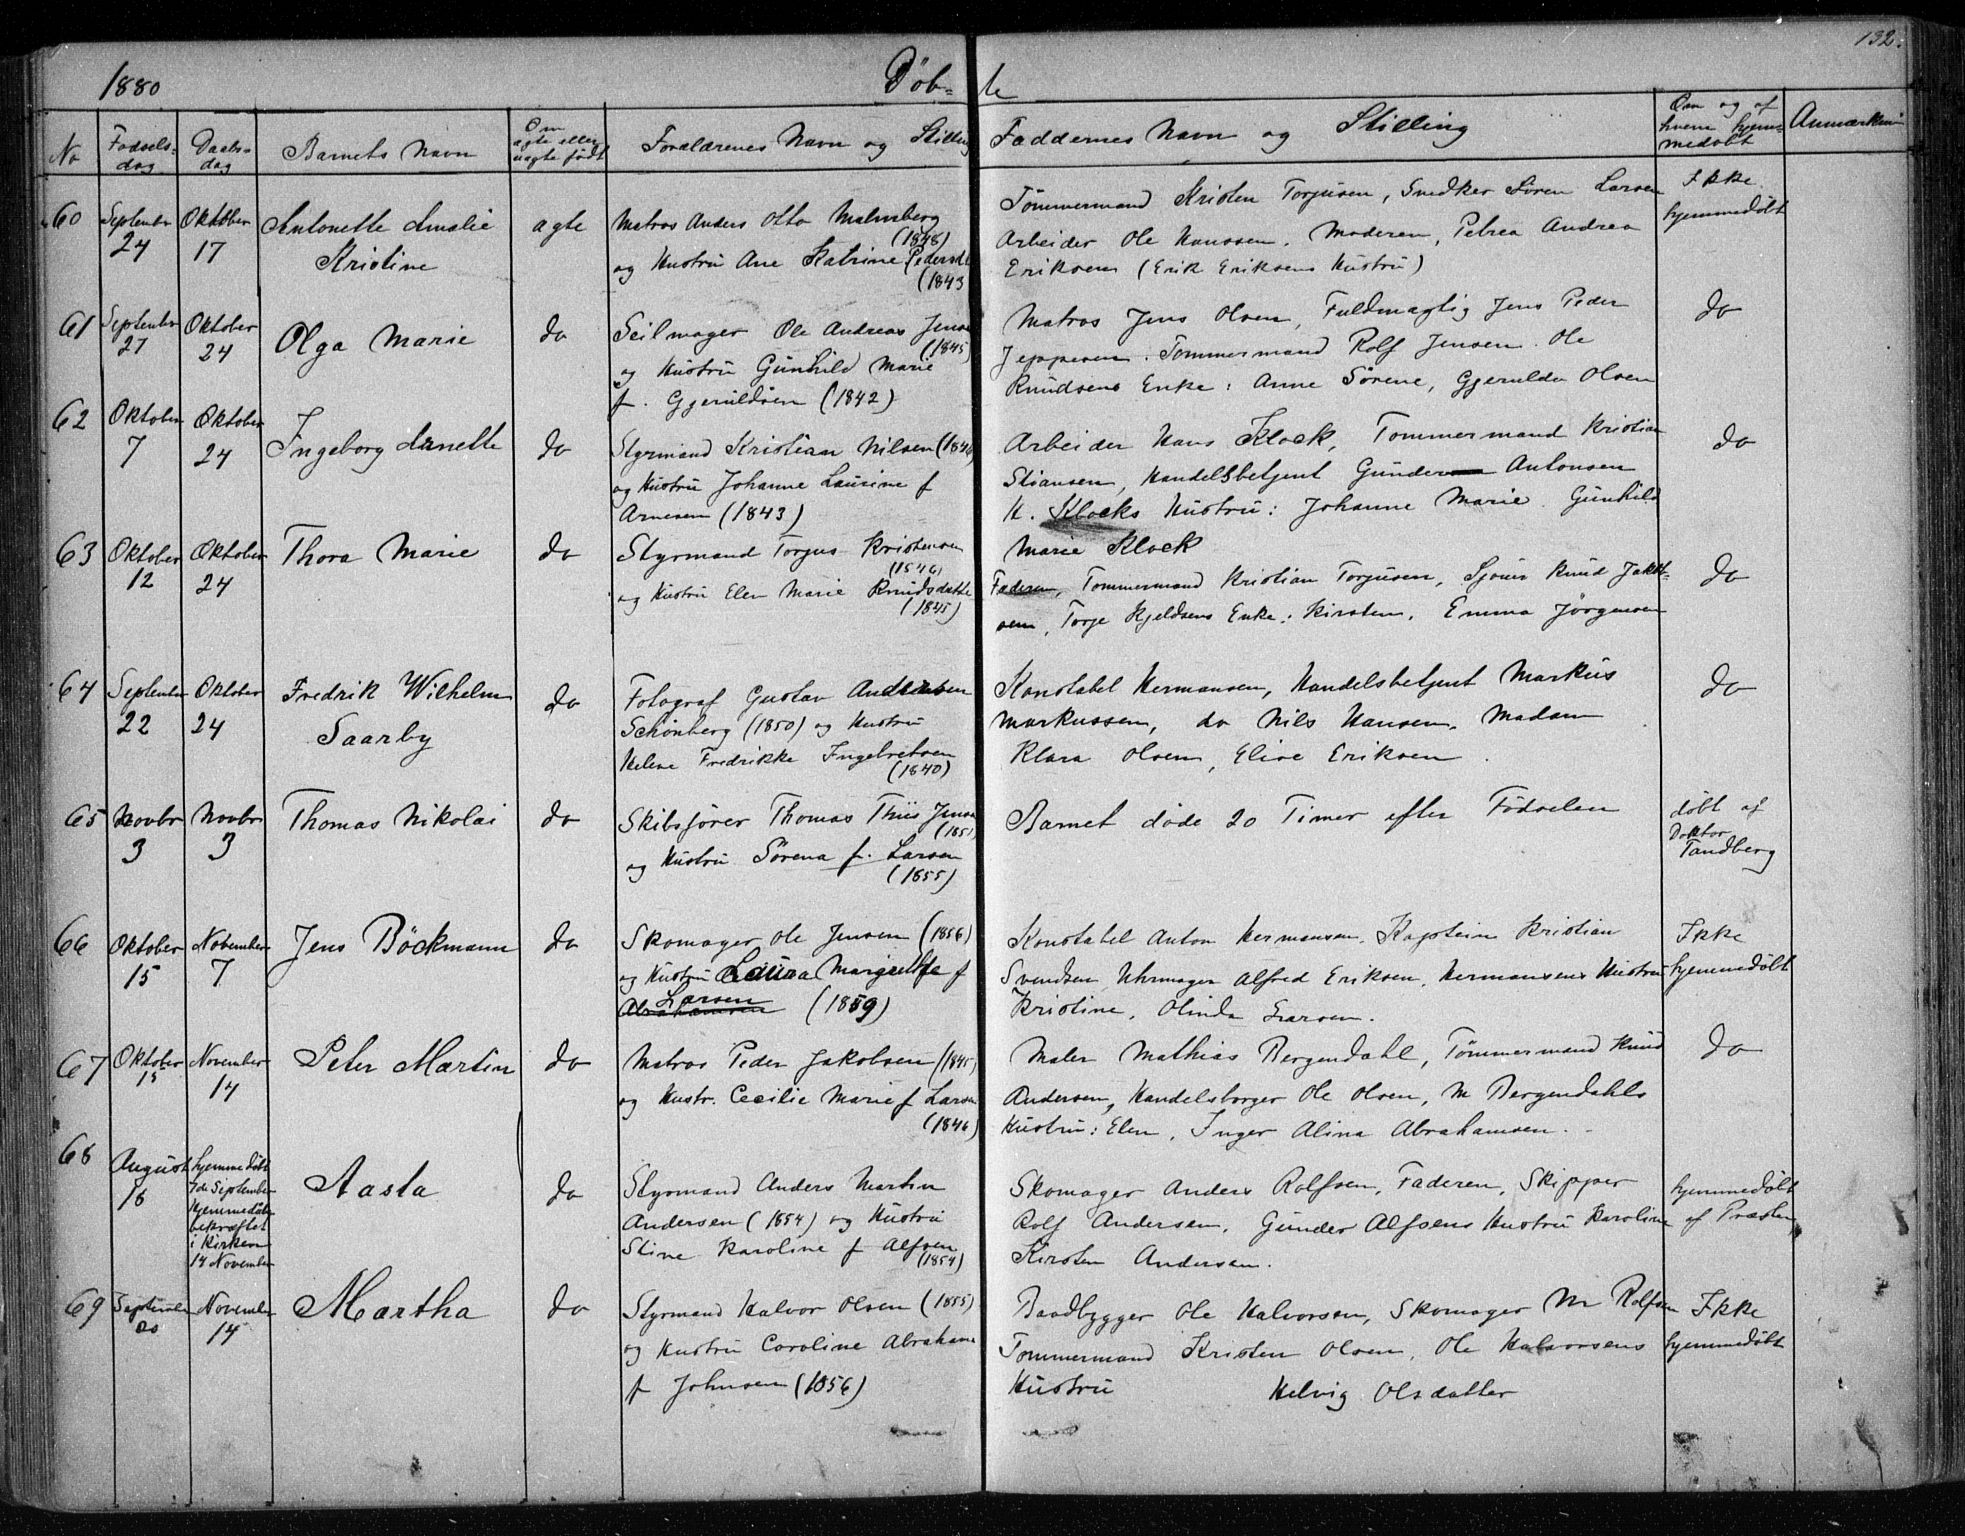 132.
1880 Døb- te
No Fødsels- dag Daabs- dag Barnets Navn Om ægte eller uægte født Forældrenes Navn og Stilling Faddernes Navn og Stilling Om og af hvem hjem- medøbt Anmærkn
60 September 24 Oktober 17 Antonette Amalie Kristine ægte
Matros Anders Otto Malmberg (1848)
og Hustru Ane Katrine Pedersdt (1843
Tømmermand Kristen Torjusen, Snedker Søren Larsen
Arbeider Ole Hanssen. Moderen, Petrea Andrea
Eriksen (Erik Eriksens Hustru)
Ikke hjemmedøbt
61 September 27 Oktober 24 Olga Marie do
Seilmager Ole Andreas Jensen (1845)
og Hustru Gunhild Marie
f. Gjeruldsen (1842)
Matros Jens Olsen, Fuldmægtig Jens Peder
Jeppesen. Tømmermand Rolf Jensen. Ole
Knudsens Enke: Anne Sørene, Gjerulda Olsen
do
62 Oktober 7 Oktober 24 Ingeborg Anette do
Styrmand Kristian Nilsen (1846)
og Hustru Johanne Laurine f
Arnesen (1843)
Arbeider Hans Klock, Tømmermand Kristian
Stiansen, Handelsbetjent Gunder Antonsen
H. Klocks Hustru: Johanne Marie. Gunhild
Marie Klock
do
63 Oktober 12 Oktober 24 Thora Marie do
Styrmand Torjus Kristensen (1846)
og Hustru Elen Marie Knudsdatte (1845)
Faderen, Tømmermand Kristian Torjusen, Sjouer Knud Jakob-
sen, Torje Kjeldsens Enke: Kirsten. Emma Jörgensen
do
64 September 22 Oktober 24 Fredrik Wilhelm Saarby do
Fotograf Gustav Andersen
Schönberg (1850) og Hustru
Helene Fredrikke Ingebretsen (1840)
Konstabel Hermansen, Handelsbetjent Markus
Markussen, do Nils Hansen. Madam
Klara Olsen, Elise Eriksen.
do
65 Novbr 3 Novbr 3 Thomas Nikolai do
Skibsfører Thomas Thiis Jensen (1851
og Hustru Sørena f. Larsen (1855)
Barnet døde 20 Timer efter Fødselen
døbt af Doktor Tandberg
66 Oktober 15 November 7 Jens Böckmann do
Skomager Ole Jensen (1856)
og Hustru Laura Margrethe f
Larsen
Abrahamsen (1859)
Konstabel Anton Hermansen. Kaptein Kristian
Svendsen, Uhrmager Alfred Eriksen, Hermansens Hustru
Kristine, Olinda Larsen.
Ikke hjemmedøbt
67 Oktober 15 November 14 Peter Martin do
Matros Peder Jakobsen (1845)
og Hustr. Cecilie Marie f Larsen (1846)
Maler Mathias Bergendahl, Tømmermand Knud
Andersen, Handelsborger Ole Olsen, M Bergendahls
Hustru: Elen. Inger Alina Abrahamsen.
do
68 August 16 hjemmedøbt 7de September Hjemmedåb bekræftet i Kirken 14 November Aasta do
Styrmand Anders Martin
Andersen (1854) og Hustru
Stine Karoline f Alfsen (1854)
Skomager Anders Rolfsen, Faderen, Skipper
Rolf Andersen, Gunder Alfsens Hustru Karoline
Kirsten Andersen.
hjemmedøbt af Præsten
69 September 20 November 14 Martha do
Styrmand Halvor Olsen (1855)
og Hustru Caroline Abraham
f Johnsen (1856)
Baadbygger Ole Halvorsen, Skomager M Rolfsen
Tømmermand Kristen Olsen, Ole Halvorsens
Hustru Helvig Olsdatter
Ikke hjemmedøbt